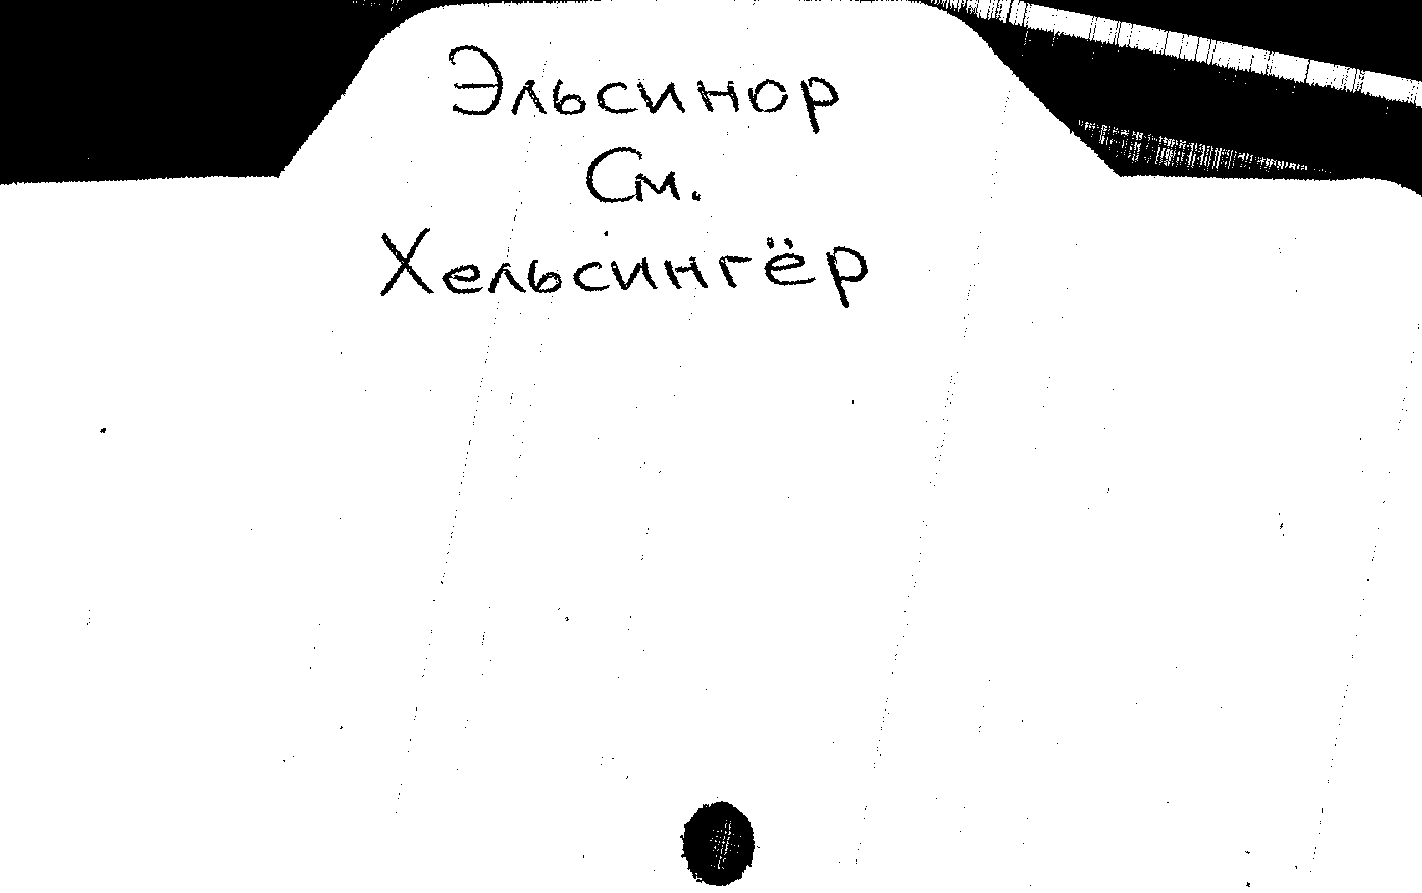 Эльсинор
См.
Хельсингёр